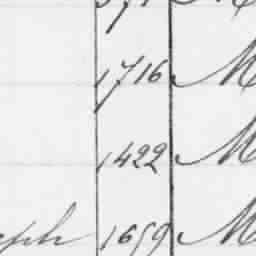 1716 M
1422 M
eph 1659 M